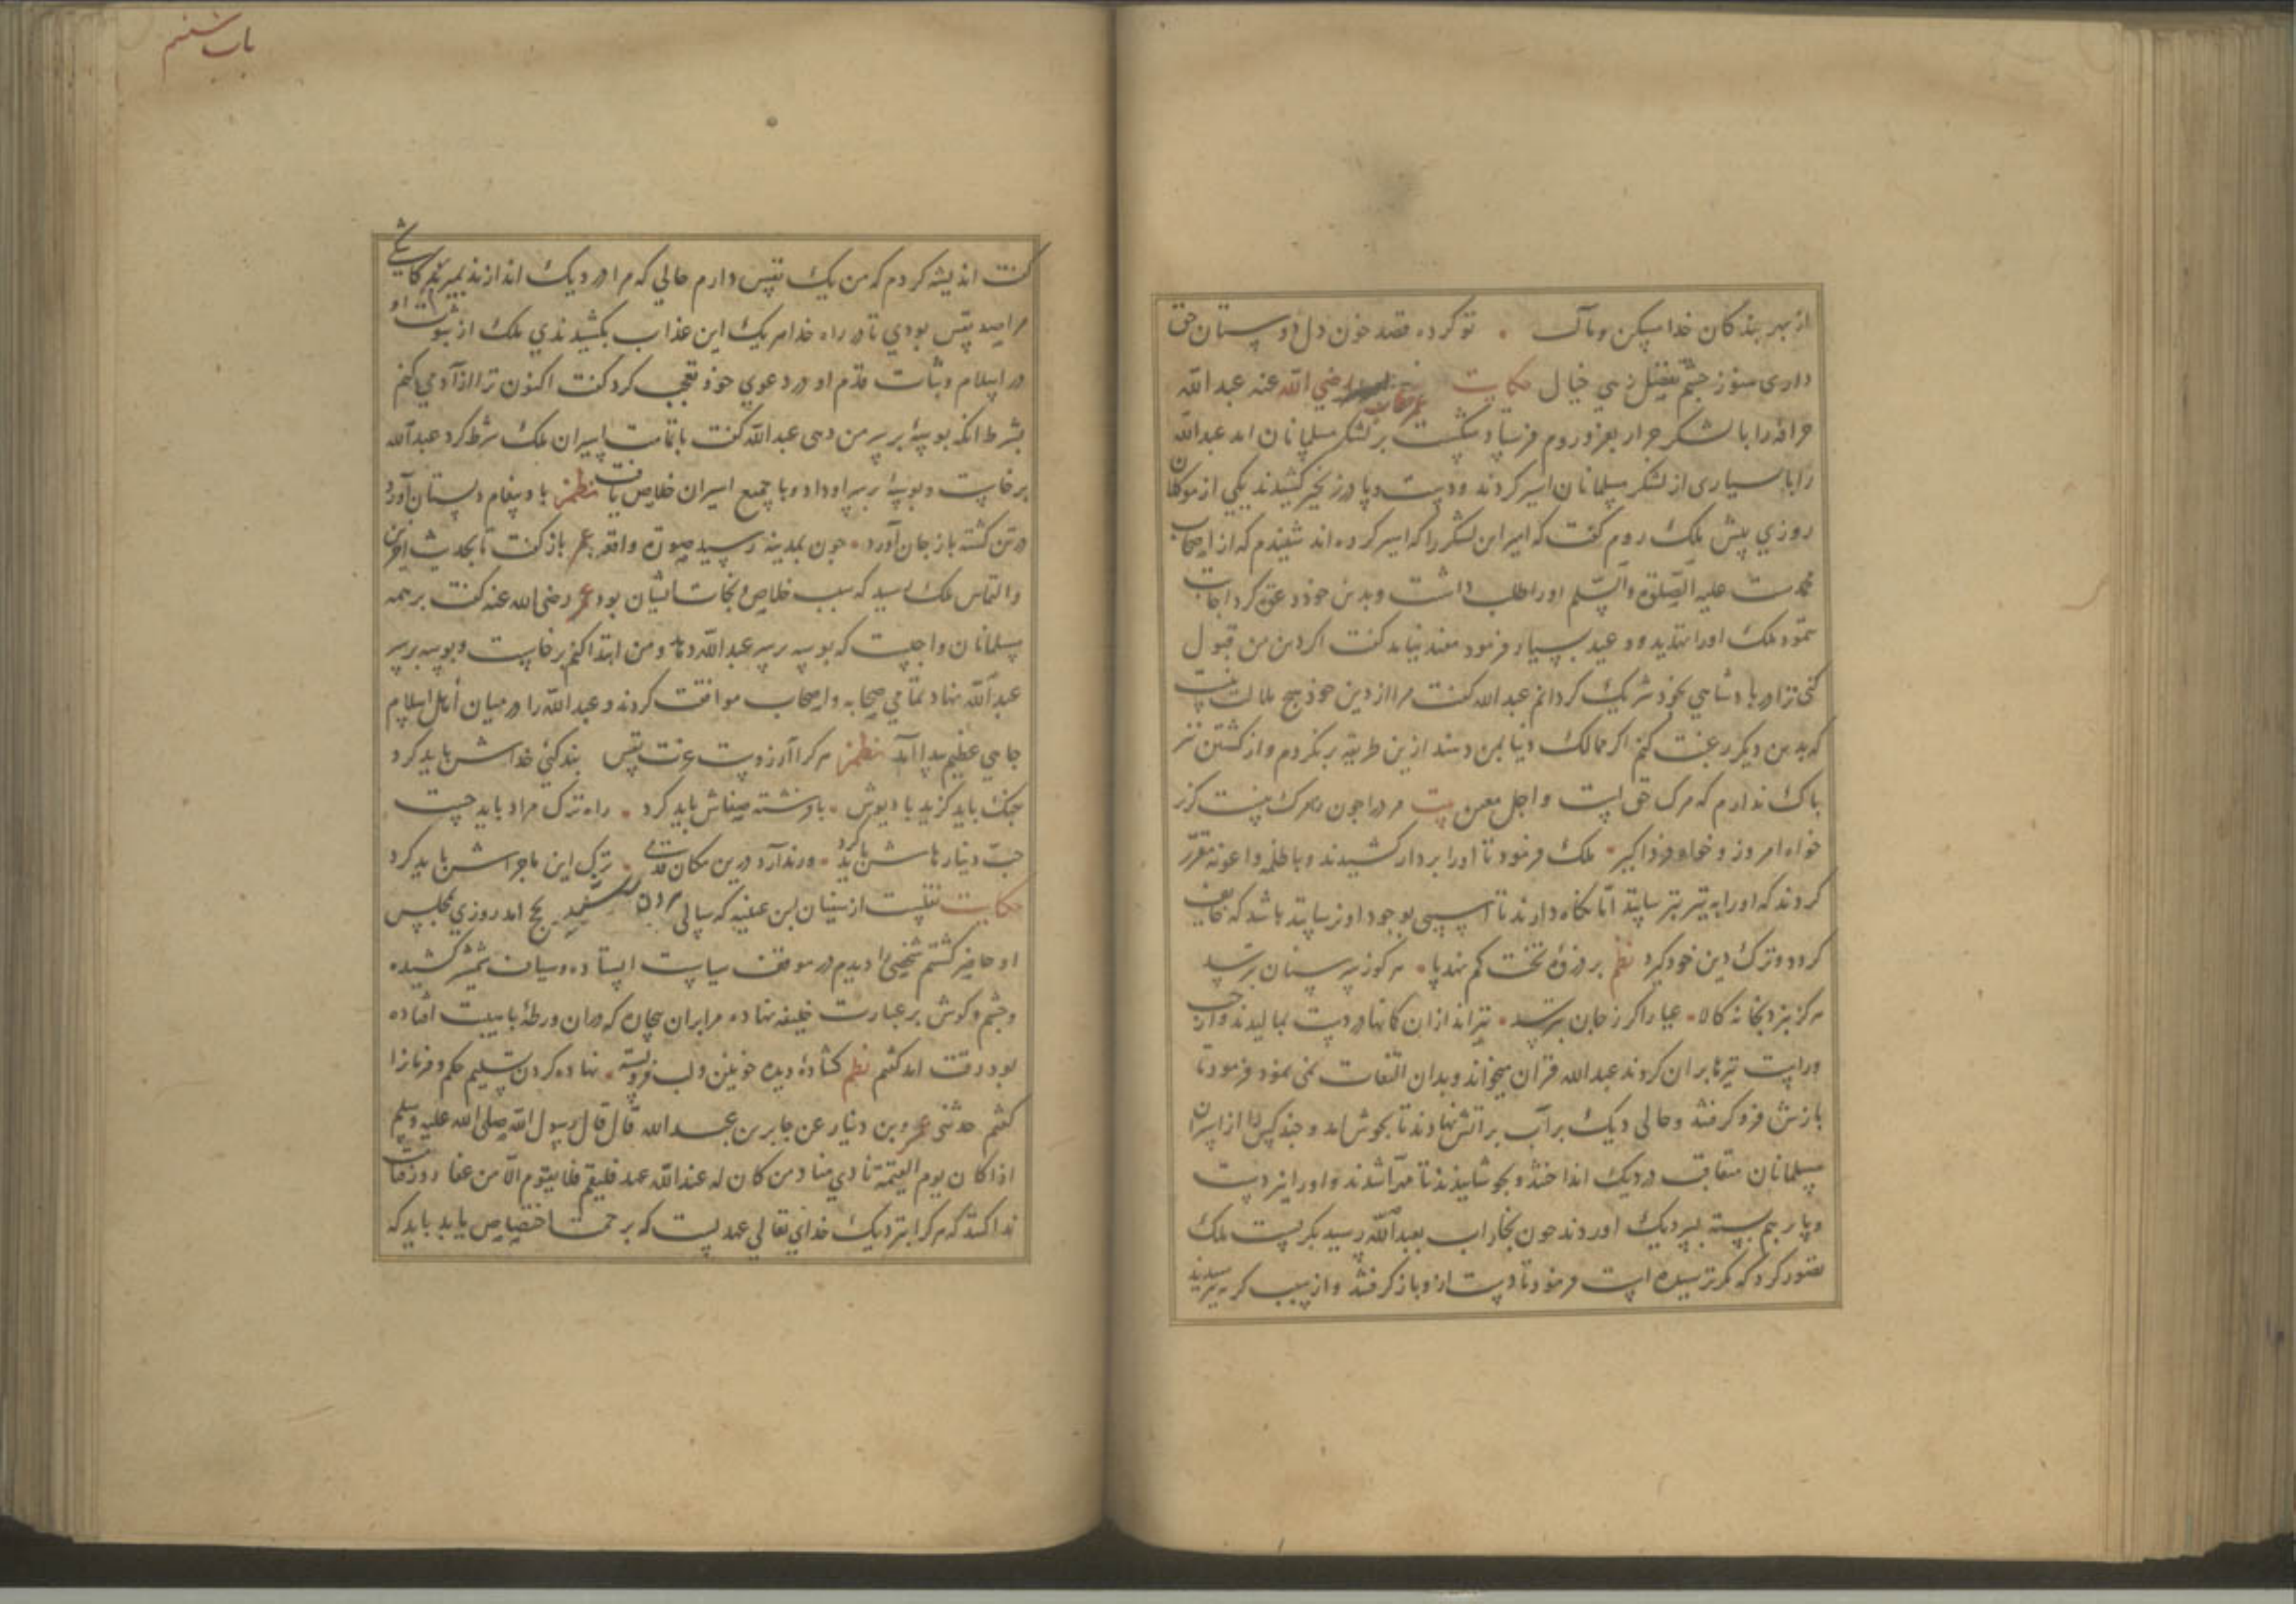 از بهر بندگان خدا مسکن و مآل ۰ تو کرده قصد خون دل دوستان حق
داری هنوز چشم تفضل زهی خیال حکایت عمر خطاب رضی الله عنه عبد الله
حذافه را با لشکر جرار بغزو روم فرستاد شکست بر لشکر مسلمانان امد عبد الله
را با بسیاری از لشکر مسلمانان اسیر کردند و دست و پا در زنجیر کشیدند یکی از موکلان
روزی پیش ملک روم کفت که امیر این لشکر را که اسیر کرده اند شنیدم که از اصحاب
محمدست علیه الصلوة والسلم او را طلب داشت و بدین خود دعوت کرد اجابت
ننمود ملک او را تهدید و وعید بسیار فرمود مفید نیامد کفت اکر دین من قبول
کنی ترا در پادشاهی بخود شریک کردانم عبد الله کفت مرا از دین خود هیچ ملالت نیست
که بدین دیکر رغبت کنم اکر ممالک دنیا بمن دهند ازین طریقه برنکردم و از کشتن نیز
باک ندارم که مرک حق است و اجل معین بیت مرد را چون ز مرک نیست کزیر
خواه امروز و خواه فردا کیر ۰ ملک فرمود تا او را بر دار کشیدند و با ظلمه و اعونه مقرر
کردند که او را به تیر بترسانند اما نکاه دارند تا اسیبی بوجود او نرسانند باشد که خایف
کردد و ترک دین خود کیرد نظم بر ذروه تخت کم نهد پا ۰ هرکو ز سر سنان بترسد
هرکز نبرد بخانه کالا ۰ عیار اکر ز جان بترسد ۰ تیراندازان کمانها در دست بمالیدند و از چپ
و راست تیرها بران کردند عبد الله قران میخواند و بدان التفات نمی نمود فرمود تا
بازش فرو کرفتند و حالی دیک پر آب بر اتش نهادند تا بجوش امد و چند کس را از اسیران
مسلمانان متعاقب در دیک انداختند و بجوشانیدند تا مهرا شدند و او را نیز دست
و پا بر هم بسته بسر دیک اوردند چون بخار اب بعبد الله رسید بکریست ملک
تصور کرد که مکر ترسیده است فرمود تا دست ازو باز کرفتند و از سبب کریه پرسیدند
باب ششم
کفت اندیشه کردم که من یک نفس دارم حالی که مرا در دیک اندازند بمیرم کاشکی
مرا صد نفس بودی تا در راه خدا هر یک این عذاب بکشیدندی ملک از ثبوت او
در اسلام و ثبات قدم او در دعوی خود تعجب کرد کفت اکنون ترا ازاد می کنم
بشرط انکه بوسهٔ بر سر من دهی عبد الله کفت با تمامت اسیران ملک شرط کرد عبد الله
برخاست و بوسهٔ بر سر او داد و با جمیع اسیران خلاص یافت نظم باد پیغام دلستان آورد
در تن کشته باز جان آورد ۰ چون بمدینه رسید صورت واقعه بعمر باز کفت تا بحدیث اخرین
و التماس ملک رسید که سبب خلاص و نجات ایشان بود عمر رضی الله عنه کفت بر همه
مسلمانان واجبست که بوسه بر سر عبد الله دهند و من ابتدا کنم برخاست و بوسه بر سر
عبد الله نهاد تمامی صحابه و اصحاب موافقت کردند و عبد الله را در میان اهل اسلام
جاهی عظیم پیدا آمد نظم هرکرا آرزوست عزت نفس بندکی خداش باید کرد
جنک باید کزید با دیوش ۰ با فرشته صفاش باید کرد ۰ راه ترک مراد باید جست
حب دینار هاش باید کرد ۰ ور ندارد درین مکان قدمی ۰ ترک این ماجراش باید کرد
حکایت نقلست از سفیان بن عیینه که سالی هرون الرشید بحج امد روزی بمجلس
او حاضر کشتم شخصی را دیدم در موقف سیاست ایستاده و سیاف شمشیر کشیده
و چشم و کوش بر عبارت خلیفه نهاده مرا بران بیچاره که دران ورطهٔ با هیبت افتاده
بود رقت امد کفتم نظم کشاده دیده خونین و لب فروبسته ۰ نهاده کردن تسلیم حکم و فرمانرا
کفتم حدثنی عمرو بن دینار عن جابر بن عبد الله قال قال رسول الله صلی الله علیه وسلم
اذا کان یوم القیمة نادی مناد من کان له عند الله عهد فلیقم فلا یقوم الا من عفا روز قیامت
ندا کنند که هرکرا نزدیک خدای تعالی عهدیست که برحمت اختصاص یابد باید که